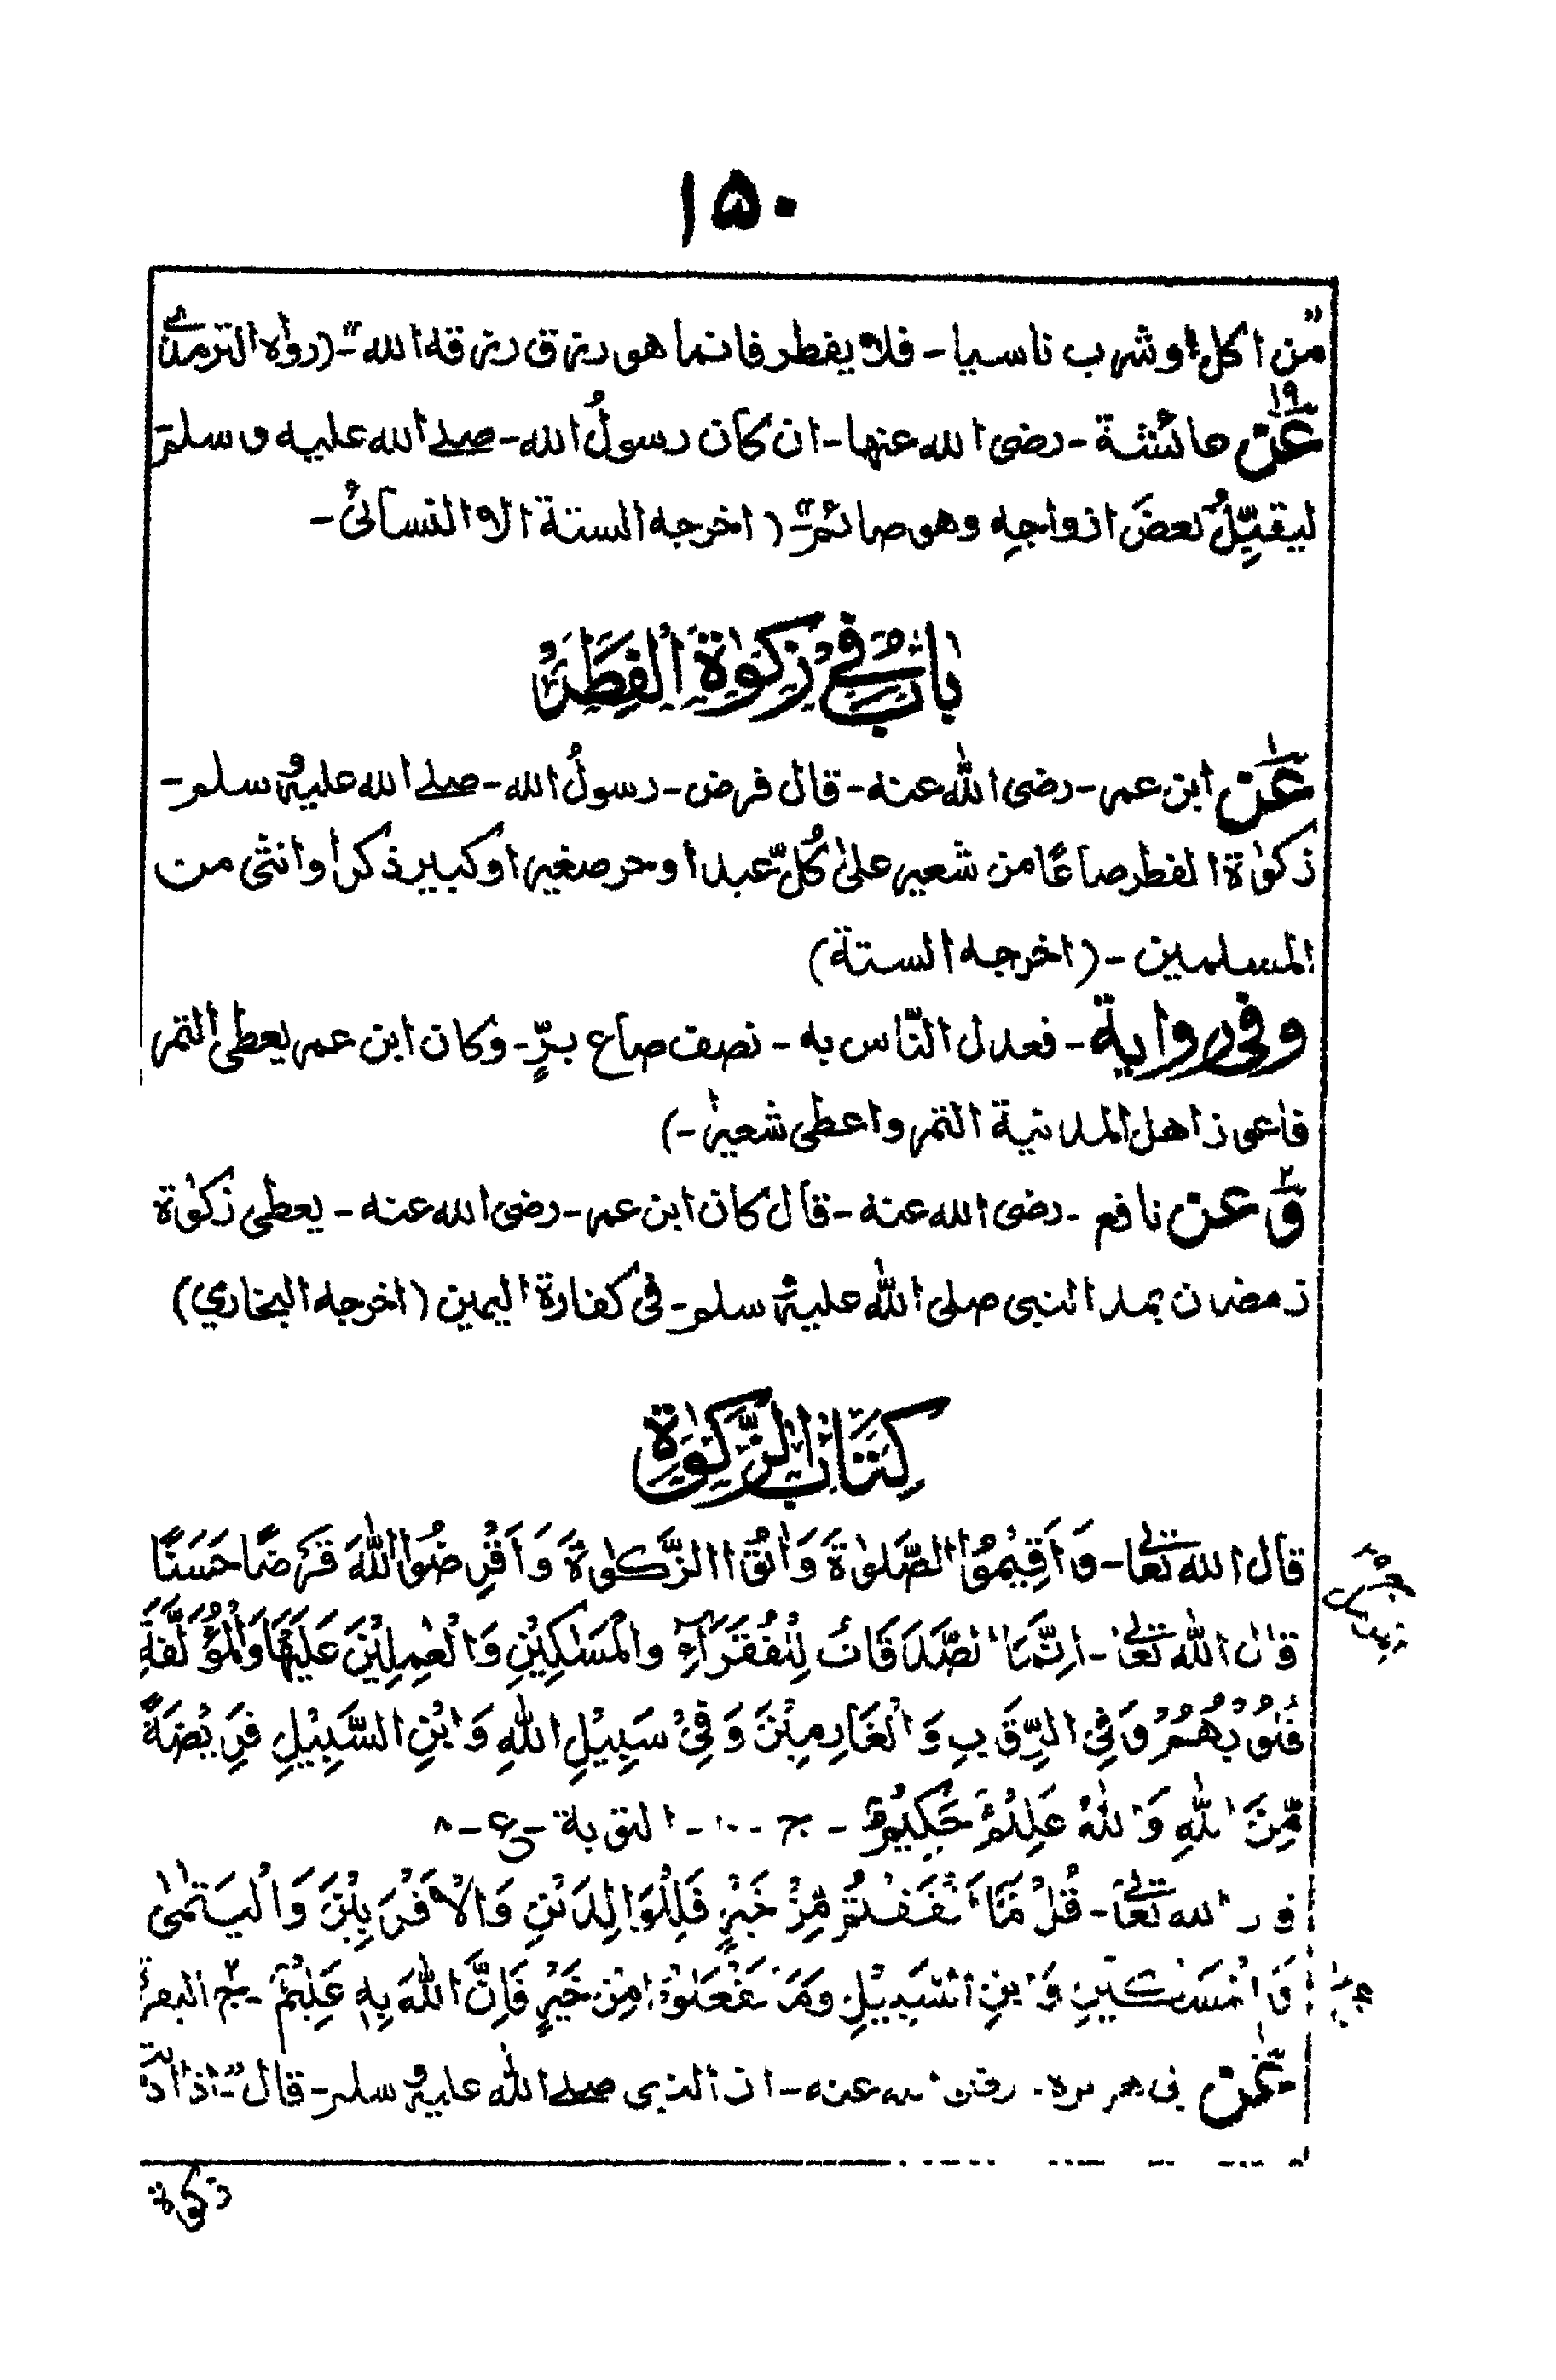 ۱۵۰
"من اكل او شرب ناسيا - فلا يفطر فانما هو رزق رزقه الله" - (رواه الترمذي
۱۹ عن عائشة - رضى الله عنها - ان كان رسولُ الله - صلے الله عليه و سلم
ليقبِّلُ بعضَ ازواجِه وهو صائم" - (اخرجه الستة الا النسائى -
بَابٌ فِىْ زَكوٰةِ الْفِطَرِ
۱ عن ابن عمر - رضى اللّٰه عنه - قال فرض - رسولُ الله - صلے الله عليه و سلم -
زكوٰة الفطر صاعًا من شعير علىٰ كُلِّ عبد او حر صغير او كبير ذكر او انثى من
المسلمين - (اخرجه الستة)
وفى رواية - فعدل النّاس به - نصف صاع برٍّ - وكان ابن عمر يعطى التمر
فاعوز اهل المدنية التمر واعطى شعيرا -)
۲ وَعن نافع - رضى الله عنه - قال كان ابن عمر - رضى الله عنه - يعطى زكوٰة
رمضان بمد النبى صلى اللّٰه عليه و سلم - فى كفارة اليمين (اخرجه البخاري)
كِتَابُ الزَّكوٰةِ
قال الله تعالىٰ - وَاَقِيْمُوا الصَّلوٰةَ وَاٰتُوا الزَّكوٰةَ وَاَقْرِضُوا اللّٰهَ قَرْضًا حَسَنًا
قال اللّٰه تعالىٰ - اِنَّمَا الصَّدَقَاتُ لِلْفُقَرَآءِ والْمَسٰكِيْنِ وَالْعٰمِلِيْنَ عَلَيْهَا وَالْمُؤَلَّفَةِ
قُلُوْبُهُمْ وَفِى الرِّقَابِ وَالْغَارِمِيْنَ وَفِىْ سَبِيْلِ اللّٰهِ وَابْنِ السَّبِيْلِ فَرِيْضَةً
مِّنَ اللّٰهِ وَاللّٰهُ عَلِيْمٌ حَكِيْمٌ - ج - ۱۰ - التوبة - ع - ۸
قال الله تعالىٰ - قُلْ مَآ اَنْفَقْتُمْ مِّنْ خَيْرٍ فَلِلْوَالِدَيْنِ وَالْاَقْرَبِيْنَ وَالْيَتٰمٰى
وَالْمَسٰكِيْنِ وَابْنِ السَّبِيْلِ وَمَا تَفْعَلُوْا مِنْ خَيْرٍ فَاِنَّ اللّٰهَ بِهٖ عَلِيْمٌ - ج۲ البقرة
عن ابى هريره - رضى الله عنه - ان النبى صلے اللّٰه عليه و سلم - قال - "اذا اديت
زكوٰة